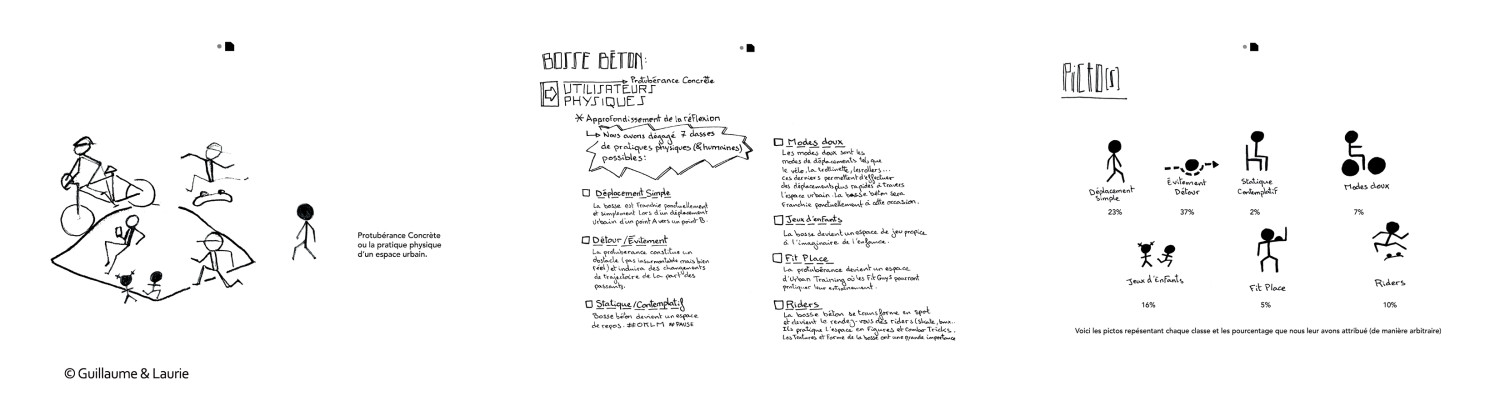 Protubérance Concrète
ou la pratique physique
d'un espace urbain.
© Guillaume & Laurie
BOSSE BÉTON:
Protubérance Concrète
UTILISATEURS
PHYSIQUES
* Approfondissement de la réflexion
Nous avons dégagé 7 classes
de pratiques physiques (& humaines)
possibles:
Déplacement Simple
La bosse est franchie ponctuellement
et simplement lors d'un déplacement
Urbain d'un point A vers un point B.
Détour/Évitement
La protubérance constitue un
obstacle (pas insurmontable mais bien
réel) et induira des changements
de trajectoire de la part des
passants.
Statique/Contemplatif
Bosse béton devient un espace
de repos. #EOKLM #PAUSE
Modes doux
Les modes doux sont les
modes de déplacements tels que
le vélo, la trottinette, les rollers...
ces derniers permettent d'effectuer
des déplacements plus rapides à travers
l'espace urbain. La bosse béton sera
franchie ponctuellement à cette occasion.
Jeux d'enfants
La bosse devient un espace de jeu propice
à l'imaginaire de l'enfance.
Fit Place
La protubérance devient un espace
d'Urban Training où les Fit Guys pourront
pratiquer leur entraînement.
Riders
La bosse béton se transforme en spot
et devient le rendez-vous des riders (skate, bmx...
Ils pratique l'espace en Figures et Combo Tricks.
Les Textures et Forme de la bosse ont une grande importance
PICTO(S)
Déplacement
Simple
23%
Évitement
Détour
37%
Statique
Contemplatif
2%
Modes doux
7%
Jeux d'Enfants
16%
Fit Place
5%
Riders
10%
Voici les pictos repésentant chaque classe et les pourcentage que nous leur avons attribué (de manière arbitraire)